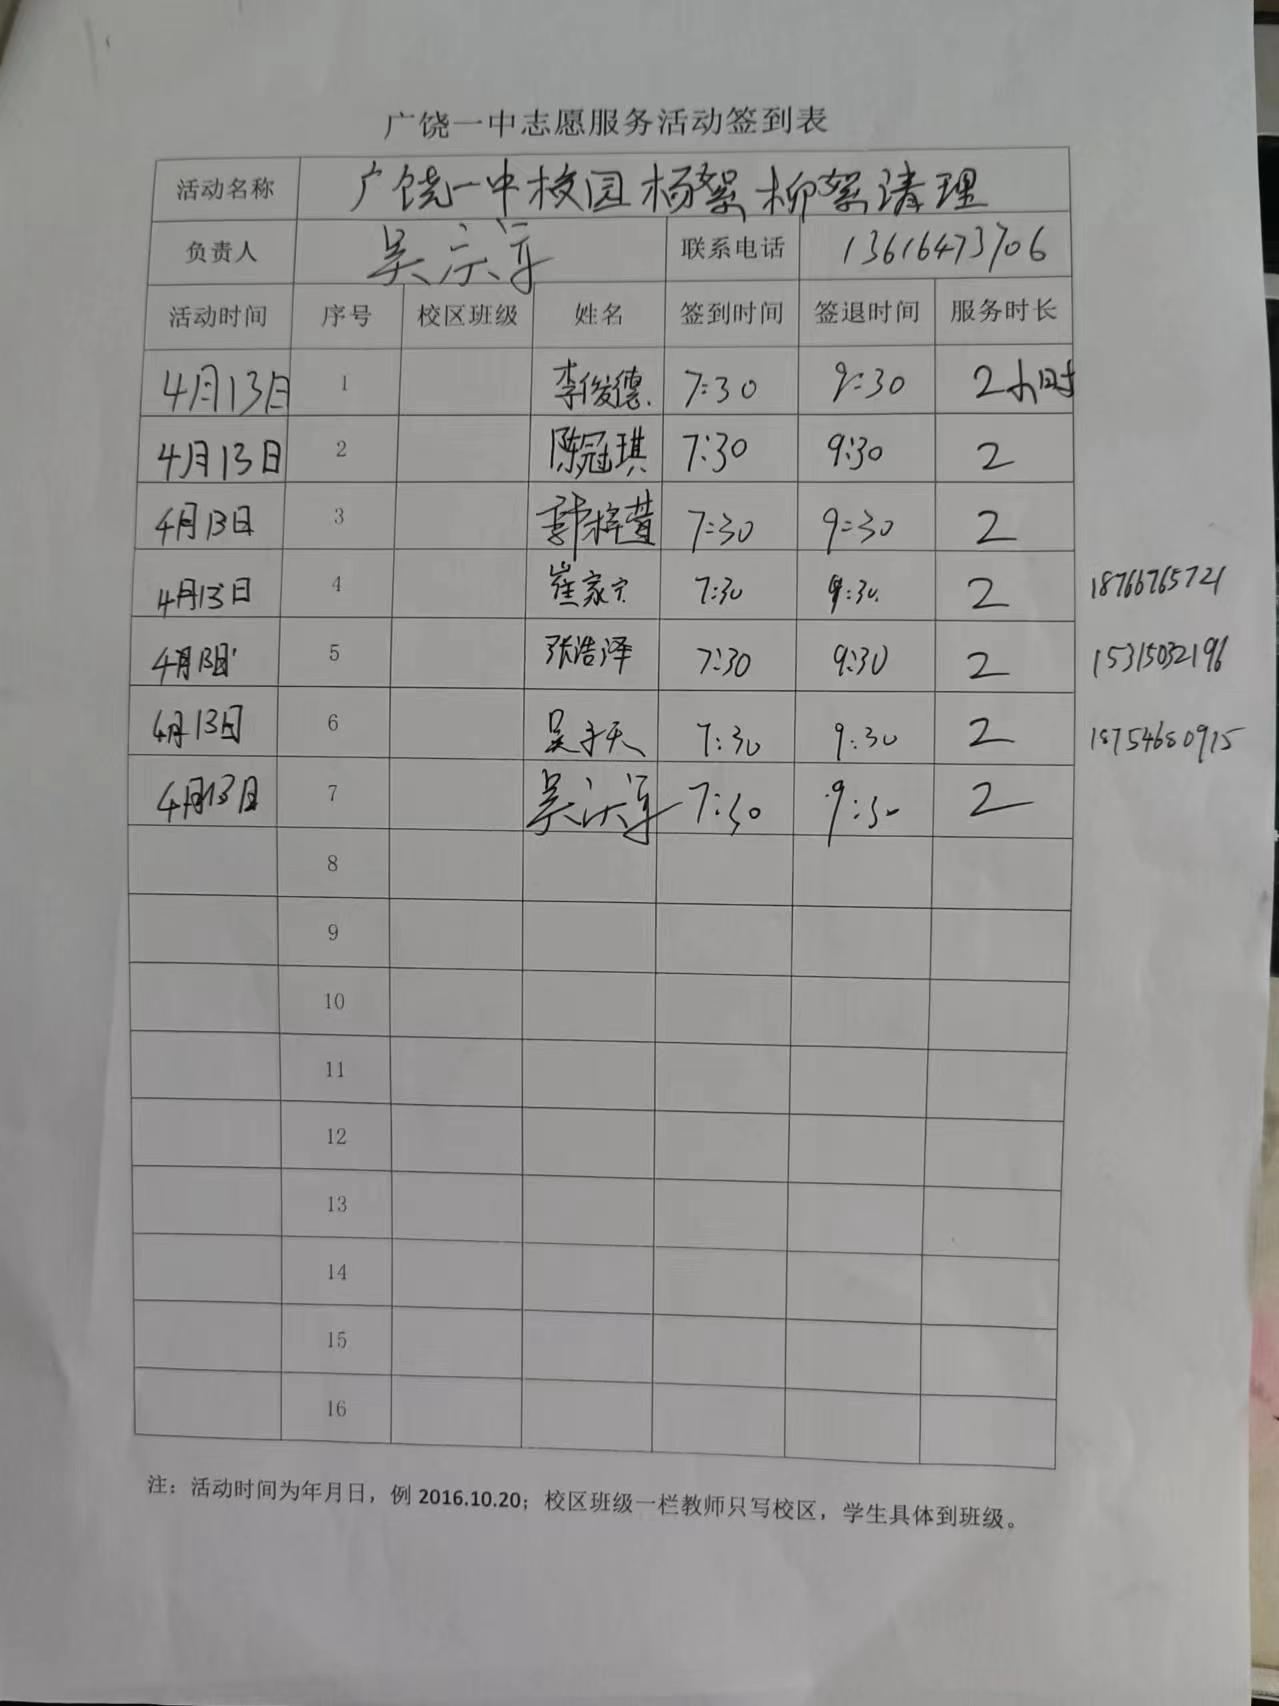 广饶一中志愿服务活动签到表
活动名称 广饶一中校园杨絮柳絮清理
负责人 吴宗军 联系电话 13616473706
活动时间 序号 校区班级 姓名 签到时间 签退时间 服务时长
4月13日 1 李俊德 7:30 9:30 2小时
4月13日 2 陈冠琪 7:30 9:30 2
4月13日 3 郭梓萱 7:30 9:30 2
4月13日 4 崔家宁 7:30 9:30 2 18766765721
4月13日 5 张浩泽 7:30 9:30 2 15315032196
4月13日 6 吴于天 7:30 9:30 2 18754680915
4月13日 7 吴宗军 7:30 9:30 2
8
9
10
11
12
13
14
15
16
注：活动时间为年月日，例 2016.10.20；校区班级一栏教师只写校区，学生具体到班级。